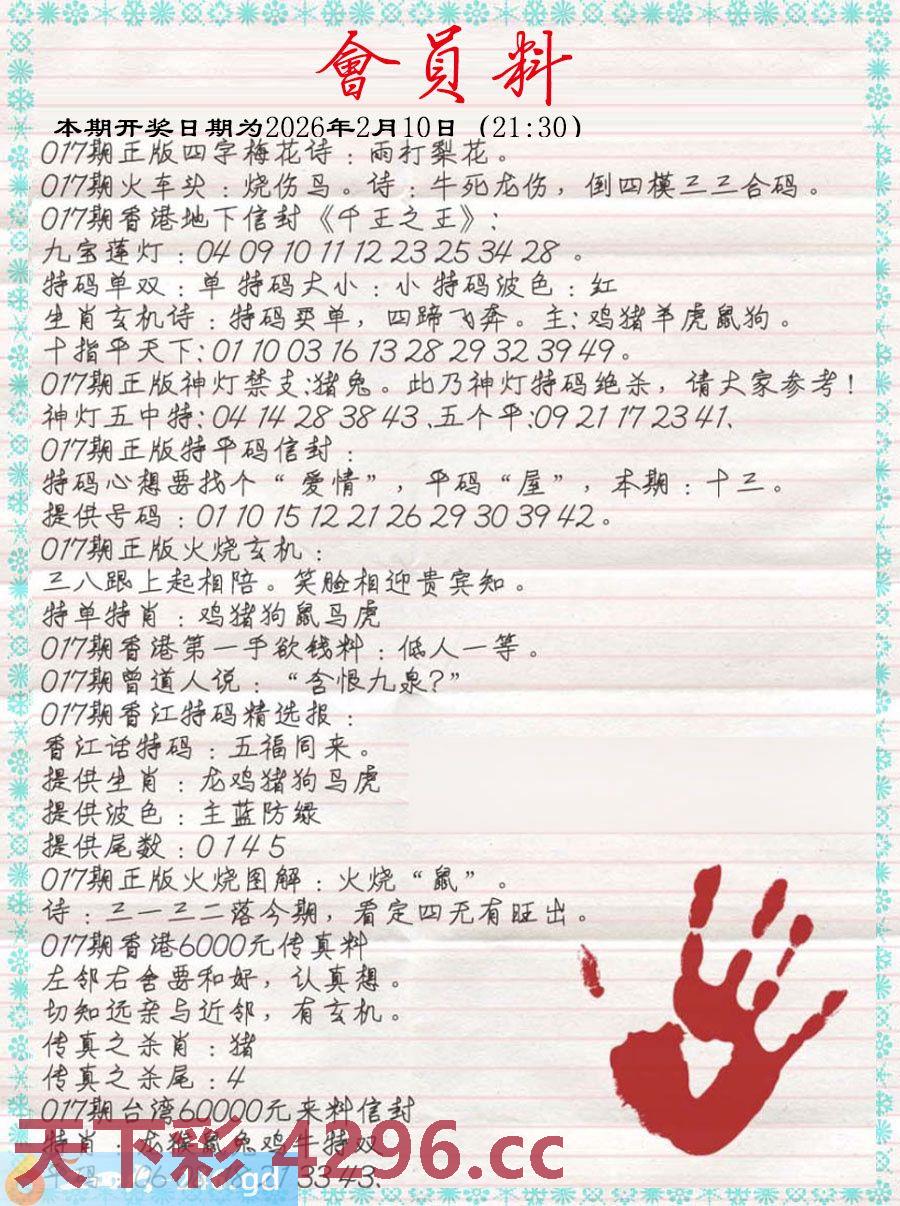 會員料
本期开奖日期为2026年2月10日（21:30）
017期正版四字梅花诗：雨打梨花。
017期火车头：烧伤鸟。诗：牛死龙伤，倒四模三三合码。
017期香港地下信封《千王之王》：
九宝莲灯：04 09 10 11 12 23 25 34 28 。
特码单双：单 特码大小：小 特码波色：红
生肖玄机诗：特码买单，四蹄飞奔。主：鸡猪羊虎鼠狗。
十指平天下：01 10 03 16 13 28 29 32 39 49。
017期正版神灯禁支：猪兔。此乃神灯特码绝杀，请大家参考！
神灯五中特：04 14 28 38 43 、五个平：09 21 17 23 41、
017期正版特平码信封：
特码心想要找个“爱情”，平码“屋”，本期：十三。
提供号码：01 10 15 12 21 26 29 30 39 42。
017期正版火烧玄机：
三八跟上起相陪。笑脸相迎贵宾知。
特单特肖：鸡猪狗鼠马虎
017期香港第一手欲钱料：低人一等。
017期曾道人说：“含恨九泉？”
017期香江特码精选报：
香江话特码：五福同来。
提供生肖：龙鸡猪狗马虎
提供波色：主蓝防绿
提供尾数：0 1 4 5
017期正版火烧图解：火烧“鼠”。
诗：三一三二落今期，看定四无有旺出。
017期香港6000元传真料
左邻右舍要和好，认真想。
切知远亲与近邻，有玄机。
传真之杀肖：猪
传真之杀尾：4
017期台湾60000元来料信封
特肖：龙猴鼠兔鸡牛特双
天下彩 4296.cc
33 43、